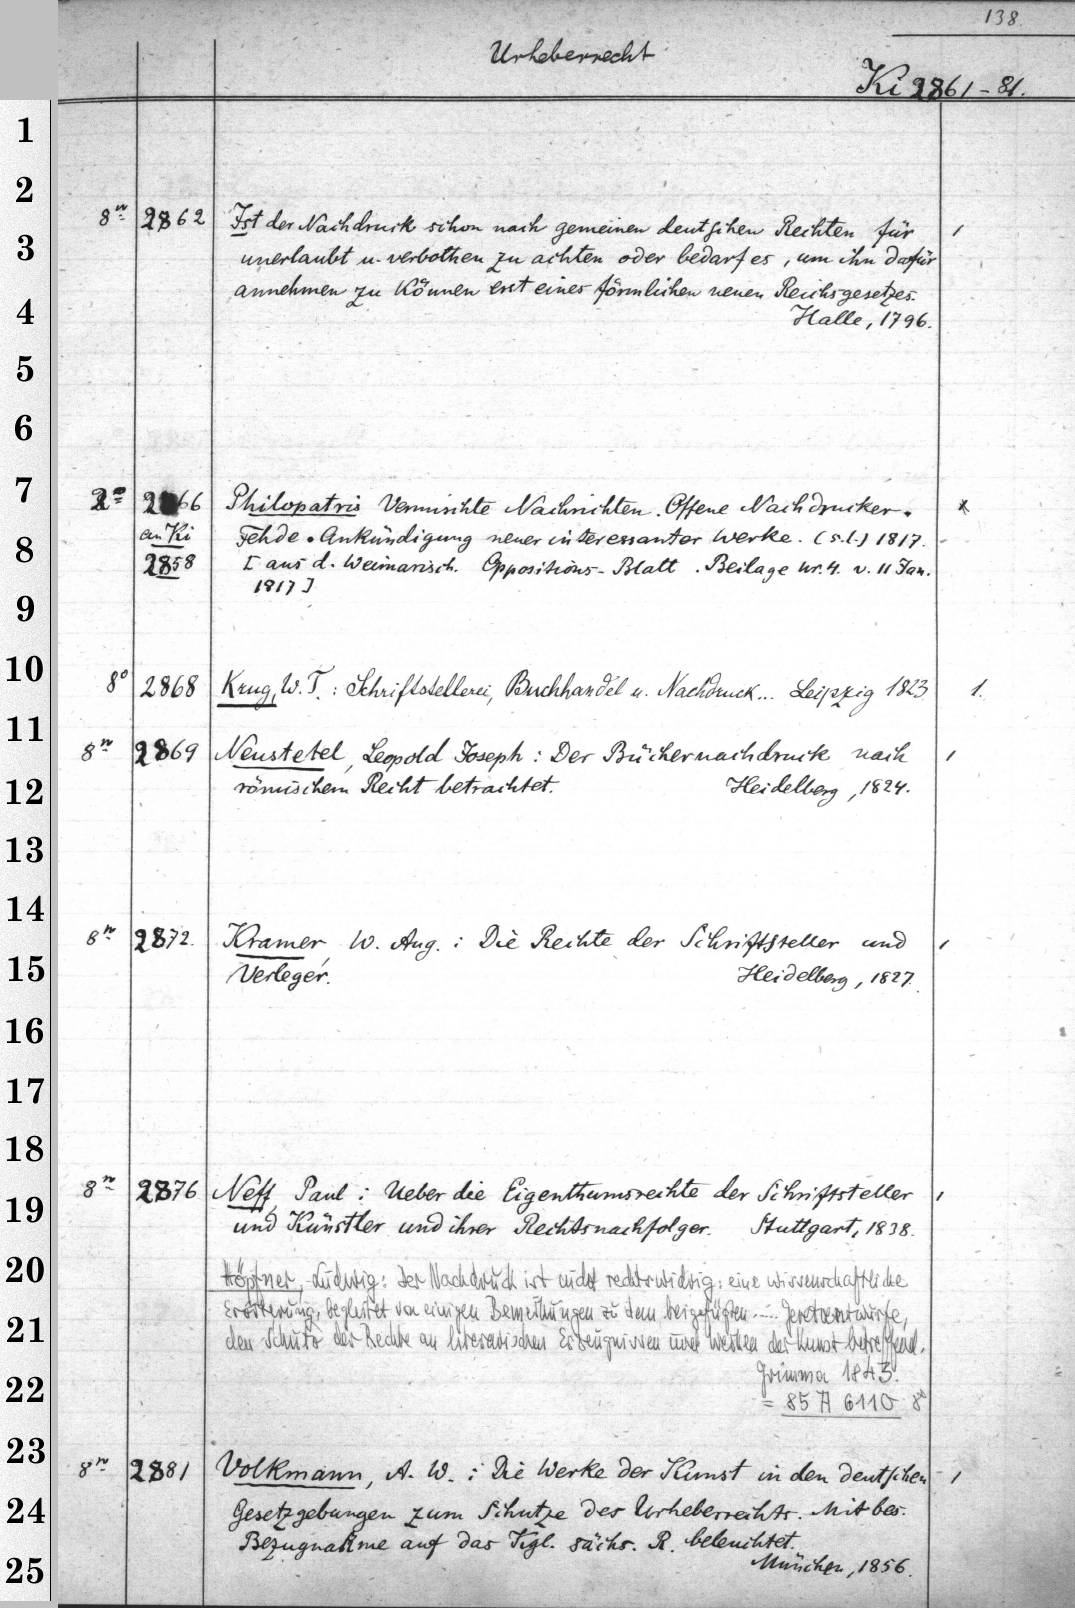 138
Urheberrecht
Ki 2861-81.
1
2
8º 2862 Ist der Nachdruck schon nach gemeinen deutschen Rechten für 1
3
unerlaubt u. verbothen zu achten oder bedarf es, um ihn dafür
annehmen zu können erst eines förmlichen neuen Reichsgesetzes.
4
Halle, 1796.
5
6
7
2866 Philopatris Vermischte Nachrichten. Offene Nachdrucker.
an Ki Fehde. Ankündigung neuer interessanter Werke. (s.l.) 1817.
8
2858 [aus d. Weimarisch. Oppositions-Blatt. Beilage Nr. 4. v. 11 Jan.
1817]
9
10
8º 2868 Krug, W. T.: Schriftstellerei, Buchhandel u. Nachdruck... Leipzig 1823 1.
11
8º 2869 Neustetel, Leopold Joseph: Der Büchernachdruck nach 1
12
römischem Recht betrachtet. Heidelberg, 1824.
13
14
8º 2872. Kramer, W. Aug.: Die Rechte der Schriftsteller und 1
15
Verleger. Heidelberg, 1827.
16
17
18
8º 2876 Neff, Paul: Ueber die Eigenthumsrechte der Schriftsteller 1
19
und Künstler und ihrer Rechtsnachfolger. Stuttgart, 1838.
20
Höpfner, Ludwig: Der Nachdruck ist nicht rechtswidrig: eine wissenschaftliche
Erörterung, begleitet von einigen Bemerkungen zu dem beigefügten .... Gesetzentwürfe,
21
den Schutz der Rechte an literarischen Erzeugnissen und Werken der Kunst betreffend.
Grimma 1843.
22
= 85 A 6110 8º
23
8º 2881 Volkmann, A. W.: Die Werke der Kunst in den deutschen 1
24
Gesetzgebungen zum Schutze des Urheberrechts. Mit bes.
Bezugnahme auf das Kgl. sächs. R. beleuchtet.
25
München, 1856.